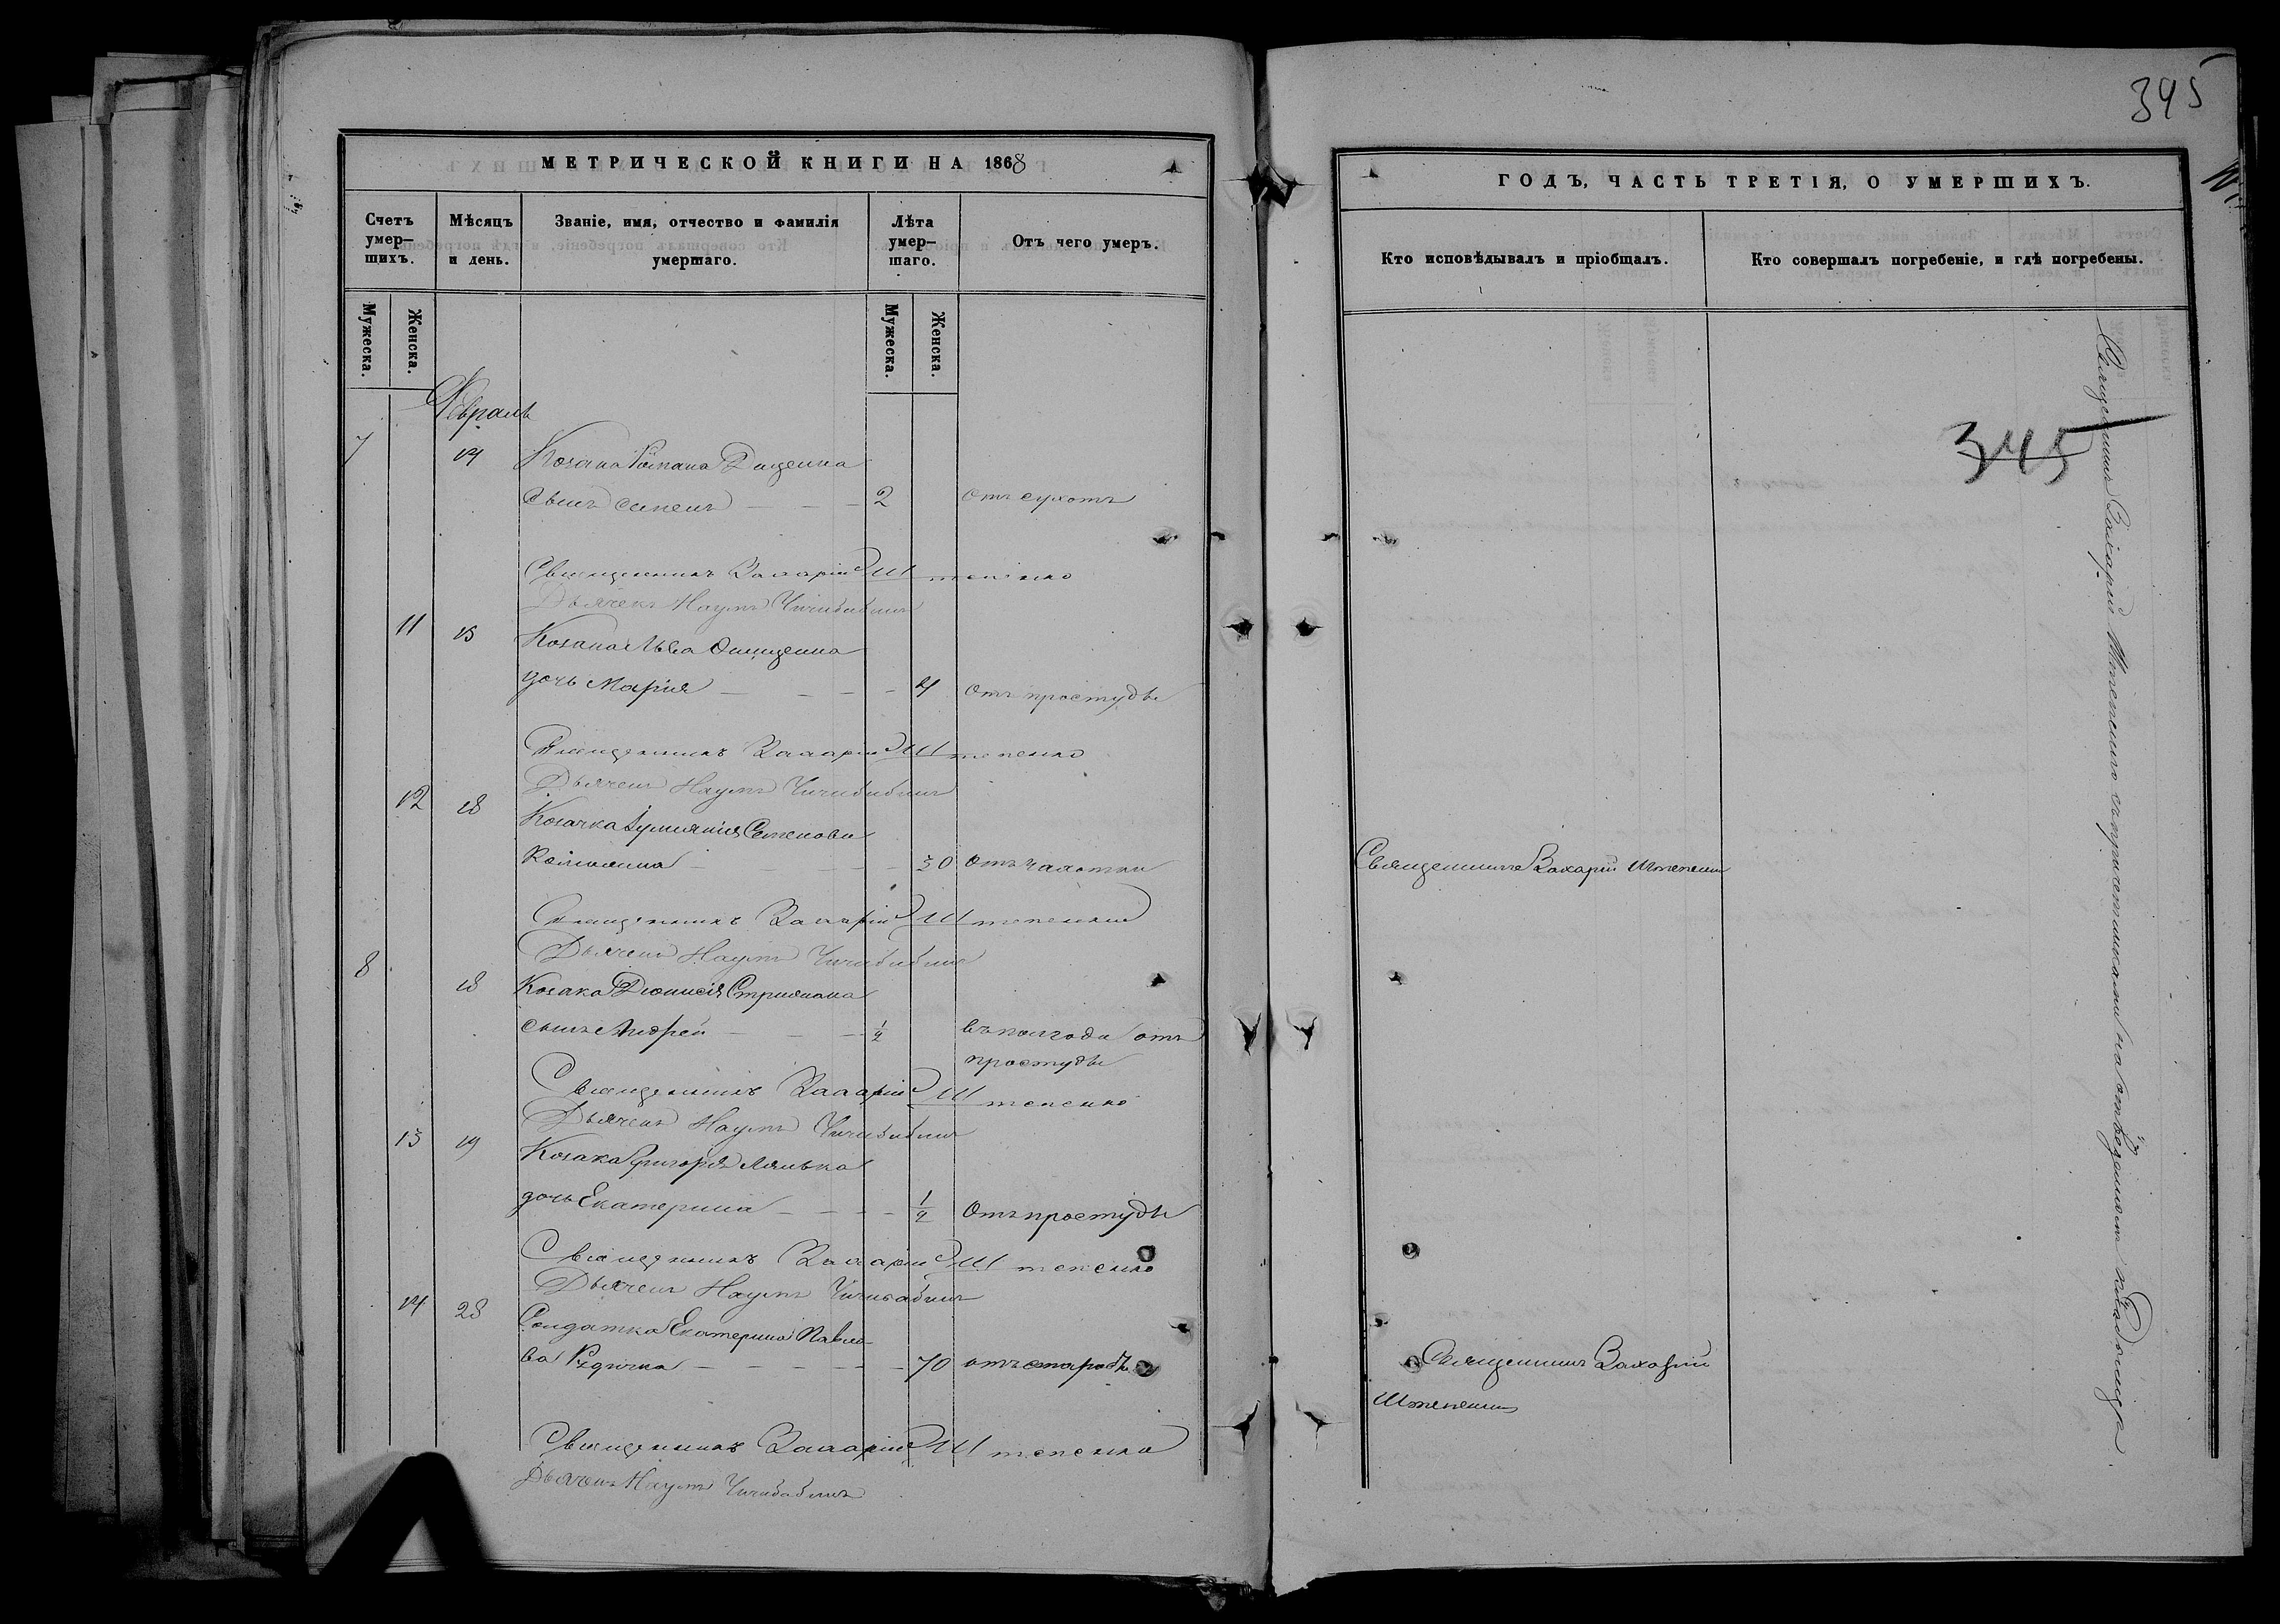 345
МЕТРИЧЕСКОЙ КНИГИ НА 1868
Счетъ умер-шихъ.
Мѣсяцъ и день.
Званіе, имя, отчество и фамилія умершаго.
Лѣта умер-шаго.
Отъ чего умеръ.
Мужеска.
Женска.
Мужеска.
Женска.
Февраль
7 14 Козака Романа
сынъ 2 отъ сухотъ
Священникъ Захарій Штепенко
Дьячекъ Наумъ Чичибабинъ
11 15 Козака Льва Онищенка
дочь Марія 4 отъ простуды
Священникъ Захарій Штепенко
Дьячекъ Наумъ Чичибабинъ
12 18 Козачка Семенова
30 отъ чахотки
Священникъ Захарій Штепенко
Дьячекъ Наумъ Чичибабинъ
8 18 Козака Діонисія
сынъ Андрей 1/2 въ полгода отъ
простуды
Священникъ Захарій Штепенко
Дьячекъ Наумъ Чичибабинъ
13 19 Козака Григорія
дочь Екатерина 1/2 Отъ простуды
Священникъ Захарій Штепенко
Дьячекъ Наумъ Чичибабинъ
14 28 Солдатка Екатерина Павло-
ва 70 отъ старости
Священникъ Захарій Штепенко
Дьячекъ Наумъ Чичибабинъ
ГОДЪ, ЧАСТЬ ТРЕТІЯ, О УМЕРШИХЪ.
Кто исповѣдывалъ и пріобщалъ.
Кто совершалъ погребеніе, и гдѣ погребены.
345
Священникъ Захарій Штепенко
Священникъ Захарій
Штепенко
Священникъ Захарій Штепенко съ причетниками на отведенномъ кладбищѣ